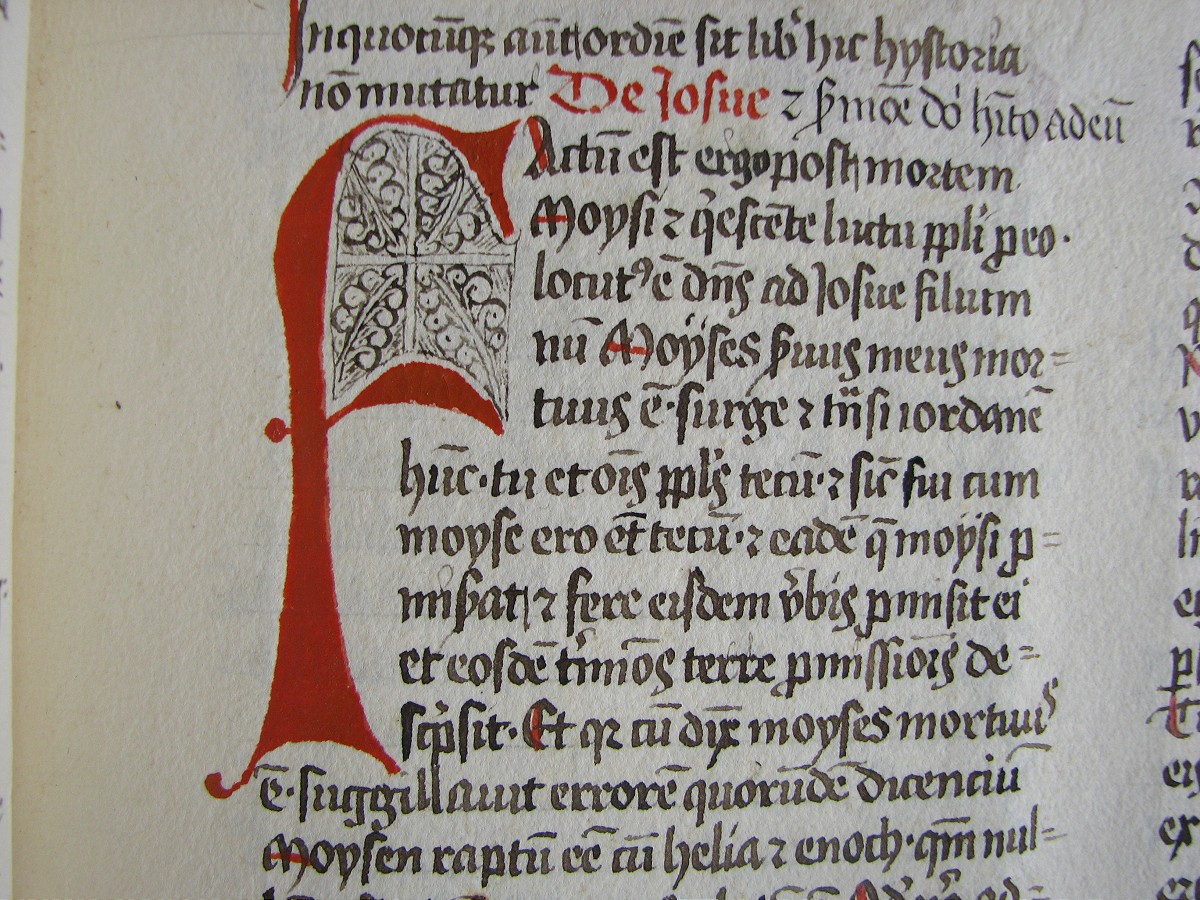 Inquotūqꝫ aūt ordīe sit lib̾ hic hystoria
nō mutatur De Josue ⁊ p̄mōe dō hīto ad eū
FActū est ergo post mortem
Moysi ⁊ q̄escēte luctu ppli p eo·
locutꝰ ē dn̄s ad Josue filium
nū Moyses s̄uus meus mor=
tuus ē· surge ⁊ tn̄si iordanē
hūc· tu et oīs ppl̄s tecū· ⁊ sic̄ fui cum
moyse ero et̄ tecū· ⁊ eadē q̄ moysi p=
mis̄at ⁊ fere eisdem v̄bis pmisit ei
et eosdē t̄minōs terre pmissiōis de=
scp̄sit· Et qꝛ cū dix̄ moyses mortuus
ē· suggillauit errorē quorūdē dicenciū
Moysen raptū eē cū helia ⁊ enoch· qm̄ nul=